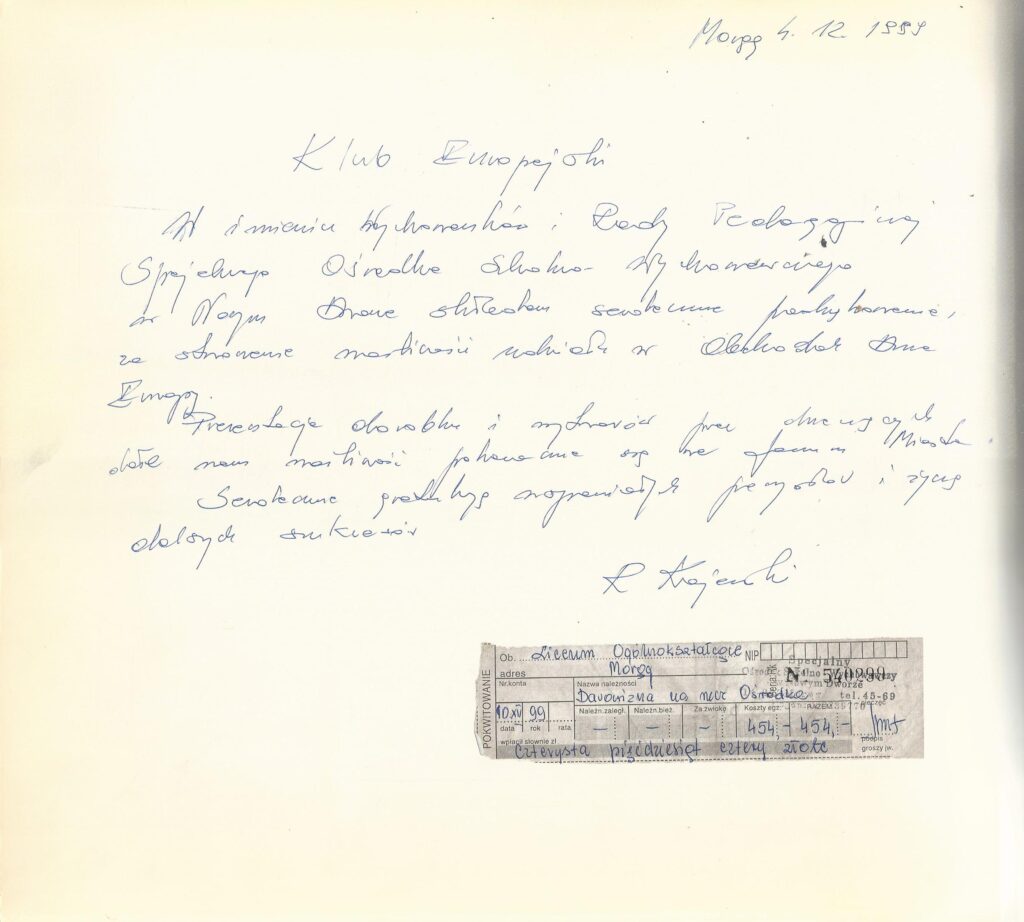 Morąg 4. 12. 1999
Klub Europejski
W imieniu Wychowanków i Rady Pedagogicznej
Specjalnego Ośrodka Szkolno-Wychowawczego
w Nowym Dworze składam serdeczne podziękowanie,
za stworzenie możliwości udziału w Obchodach Dnia
Europy.
Prezentacja dorobku i wytworów prac
dała nam możliwość pokazania się na forum Miasta.
Serdecznie gratuluję wspaniałych pomysłów i życzę
dalszych sukcesów
R Krajewski
POKWITOWANIE
Ob. Liceum Ogólnokształcące NIP
adres Morąg
Nr.konta Nazwa należności
Darowizna na rzecz Ośrodka
Specjalny
Nr 540299
tel. 45-69
Należn.zaległ. Należn.bież. Za zwłokę Koszty egz. RAZEM
10.XII 99 — — — 454 - 454,-
data rok rata podpis
wpłacił słownie zł groszy jw.
czterysta pięćdziesiąt cztery złote